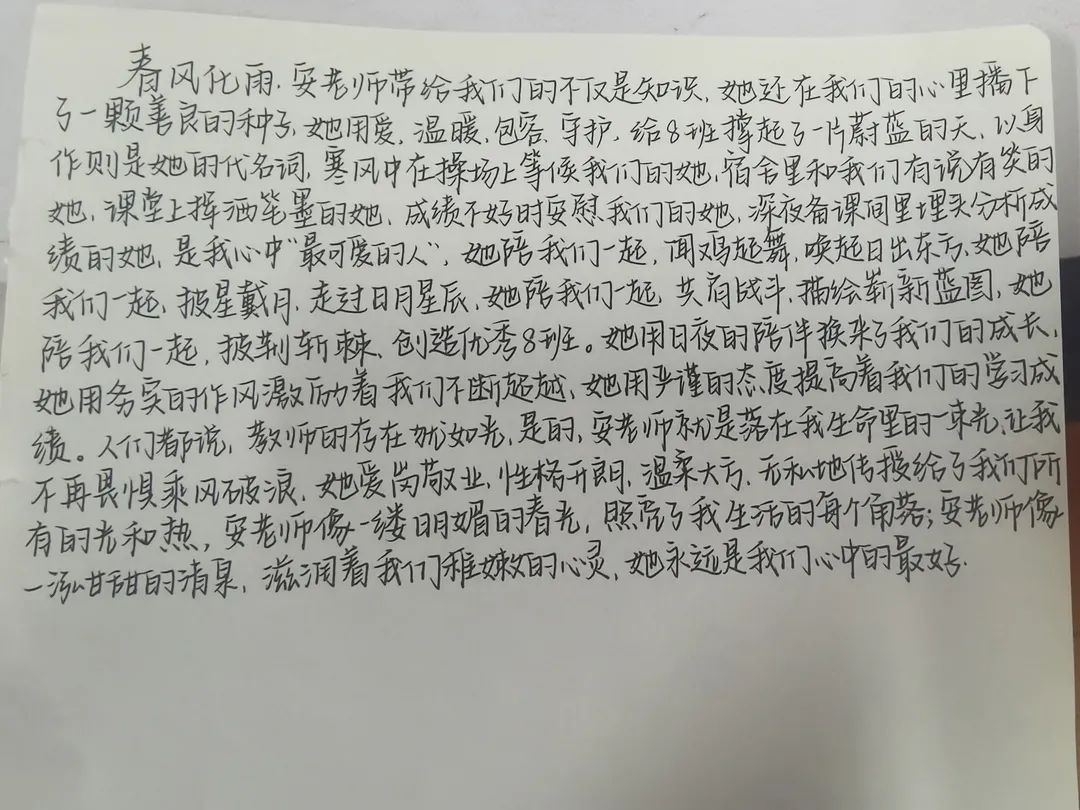 春风化雨.安老师带给我们的不仅是知识,她还在我们的心里播下
了一颗善良的种子,她用爱,温暖,包容,守护,给8班撑起了一片蔚蓝的天,以身
作则是她的代名词,寒风中在操场上等候我们的她,宿舍里和我们有说有笑的
她,课堂上挥洒笔墨的她,成绩不好时安慰我们的她,深夜备课间里埋头分析成
绩的她,是我心中“最可爱的人”,她陪我们一起,闻鸡起舞,唤起日出东方,她陪
我们一起,披星戴月,走过日月星辰,她陪我们一起,共同战斗,描绘崭新蓝图,她
陪我们一起,披荆斩棘,创造优秀8班。她用日夜的陪伴换来了我们的成长,
她用务实的作风激励着我们不断超越,她用严谨的态度提高着我们的学习成
绩。人们都说,教师的存在犹如光,是的,安老师就是落在我生命里的一束光,让我
不再畏惧乘风破浪,她爱岗敬业,性格开朗,温柔大方,无私地传授给了我们所
有的光和热,安老师像一缕明媚的春光,照亮了我生活的每个角落;安老师像
一泓甘甜的清泉,滋润着我们稚嫩的心灵,她永远是我们心中的最好.